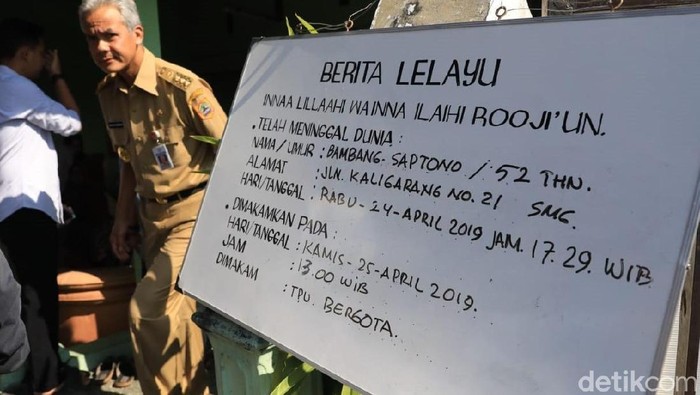 BERITA LELAYU
INNAA LILLAAHI WAINNA ILAIHI ROOJI'UN.
. TELAH MENINGGAL DUNIA :
NAMA/UMUR : BAMBANG SAPTONO / 52 THN.
ALAMAT : JLN. KALIGARANG NO. 21 SMG.
HARI/TANGGAL : RABU - 24 - APRIL 2019 JAM. 17.29. WIB
. DIMAKAMKAN PADA :
HARI/TANGGAL : KAMIS - 25 - APRIL 2019.
JAM : 13.00 WIB
DIMAKAM : TPU BERGOTA.
detikcom